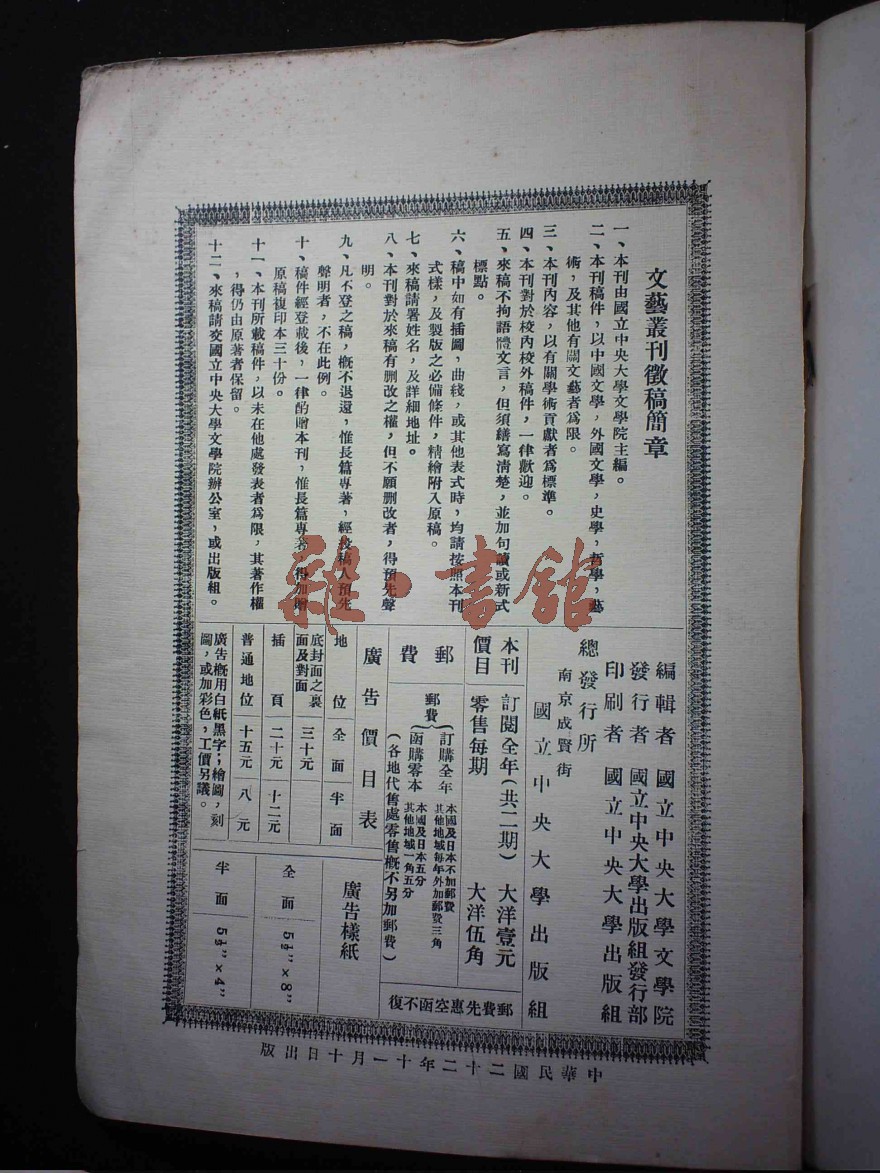 文藝叢刊徵稿簡章
一、本刊由國立中央大學文學院主編。
二、本刊稿件，以中國文學，外國文學，史學，哲學，藝
術，及其他有關文藝者爲限。
三、本刊內容，以有關學術貢獻者爲標準。
四、本刊對於校內校外稿件，一律歡迎。
五、來稿不拘語體文言，但須繕寫清楚，並加句讀或新式
標點。
六、稿中如有插圖，曲綫，或其他表式時，均請按照本刊
式樣，及製版之必備條件，精繪附入原稿。
七、來稿請署姓名，及詳細地址。
八、本刊對於來稿有刪改之權，但不願刪改者，得預先聲
明。
九、凡不登之稿，概不退還，惟長篇專著，經投稿人預先
聲明者，不在此例。
十、稿件經登載後，一律酌贈本刊，惟長篇專著，得加贈
原稿複印本三十份。
十一、本刊所載稿件，以未在他處發表者爲限，其著作權
，得仍由原著者保留。
十二、來稿請交國立中央大學文學院辦公室，或出版組。
編輯者 國立中央大學文學院
發行者 國立中央大學出版組發行部
印刷者 國立中央大學出版組
總發行所
南京成賢街
國立中央大學出版組
本刊價目
訂閱全年（共二期） 大洋壹元
零售每期 大洋伍角
郵費
郵費
訂購全年 本國及日本不加郵費
其他地域每年外加郵費三角
函購零本 本國及日本五分
其他地域一角五分
（各地代售處零售概不另加郵費）
郵費先惠空函不復
廣告價目表
地位 全面 半面
底封面之裏面及對面 三十元
插頁 二十元 十二元
普通地位 十五元 八元
廣告概用白紙黑字；繪圖，刻
圖，或加彩色，工價另議。
廣告樣紙
全面 5½"×8"
半面 5½"×4"
中華民國二十二年十一月十日出版
雜·書館